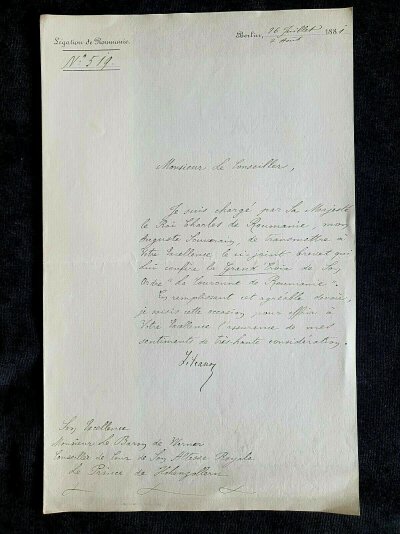 Légation de Roumanie.
Berlin, 26 Juillet 1881
7 Août
Nº 519.
Monsieur le Conseiller,
Je suis chargé par Sa Majesté
le Roi Charles de Roumanie, mon
Auguste Souverain, de transmettre à
Votre Excellence le ci-joint brevet qui
Lui confère la Grand Croix de Son
Ordre "La Couronne de Roumanie".
En remplissant cet agréable devoir,
je saisis cette occasion pour offrir à
Votre Excellence l'assurance de mes
sentiments de très haute considération.
Son Excellence
Monsieur le Baron de Werner
Conseiller de Cour de Son Altesse Royale
Le Prince de Hohenzollern